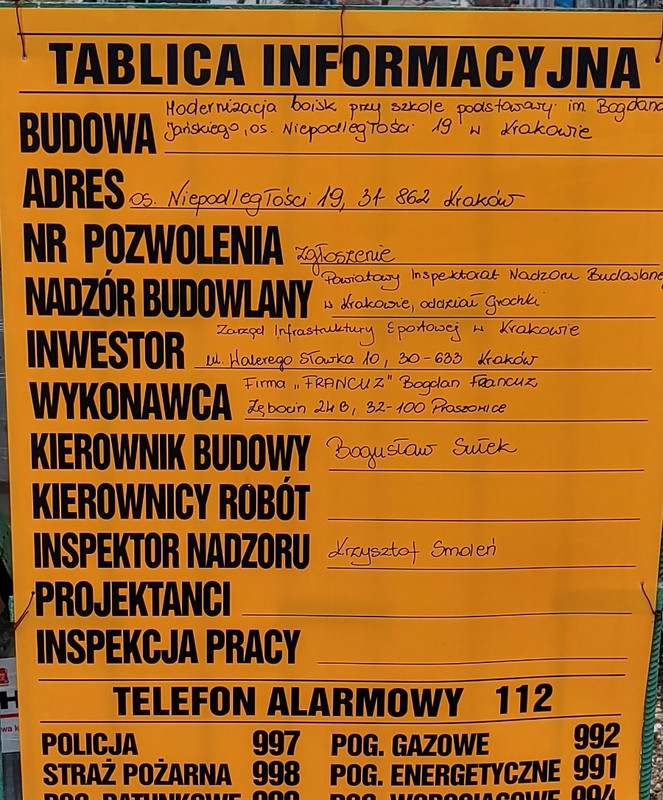 TABLICA INFORMACYJNA
Modernizacja boisk przy szkole podstawowej im. Bogdana
BUDOWA Jańskiego, os. Niepodległości 19 w Krakowie
ADRES os. Niepodległości 19, 31-862 Kraków
NR POZWOLENIA Zgłoszenie
Powiatowy Inspektorat Nadzoru Budowlane
NADZÓR BUDOWLANY w Krakowie, oddział Grochki
Zarząd Infrastruktury Sportowej w Krakowie
INWESTOR ul. Walerego Sławka 10, 30-633 Kraków
Firma "FRANCUZ" Bogdan Francuz
WYKONAWCA Zębocin 24B, 32-100 Proszowice
KIEROWNIK BUDOWY Bogusław Sułek
KIEROWNICY ROBÓT
INSPEKTOR NADZORU Krzysztof Smoleń
PROJEKTANCI
INSPEKCJA PRACY
TELEFON ALARMOWY 112
POLICJA 997 POG. GAZOWE 992
STRAŻ POŻARNA 998 POG. ENERGETYCZNE 991
POG. RATUNKOWE 999 POG. WODOCIĄGOWE 994